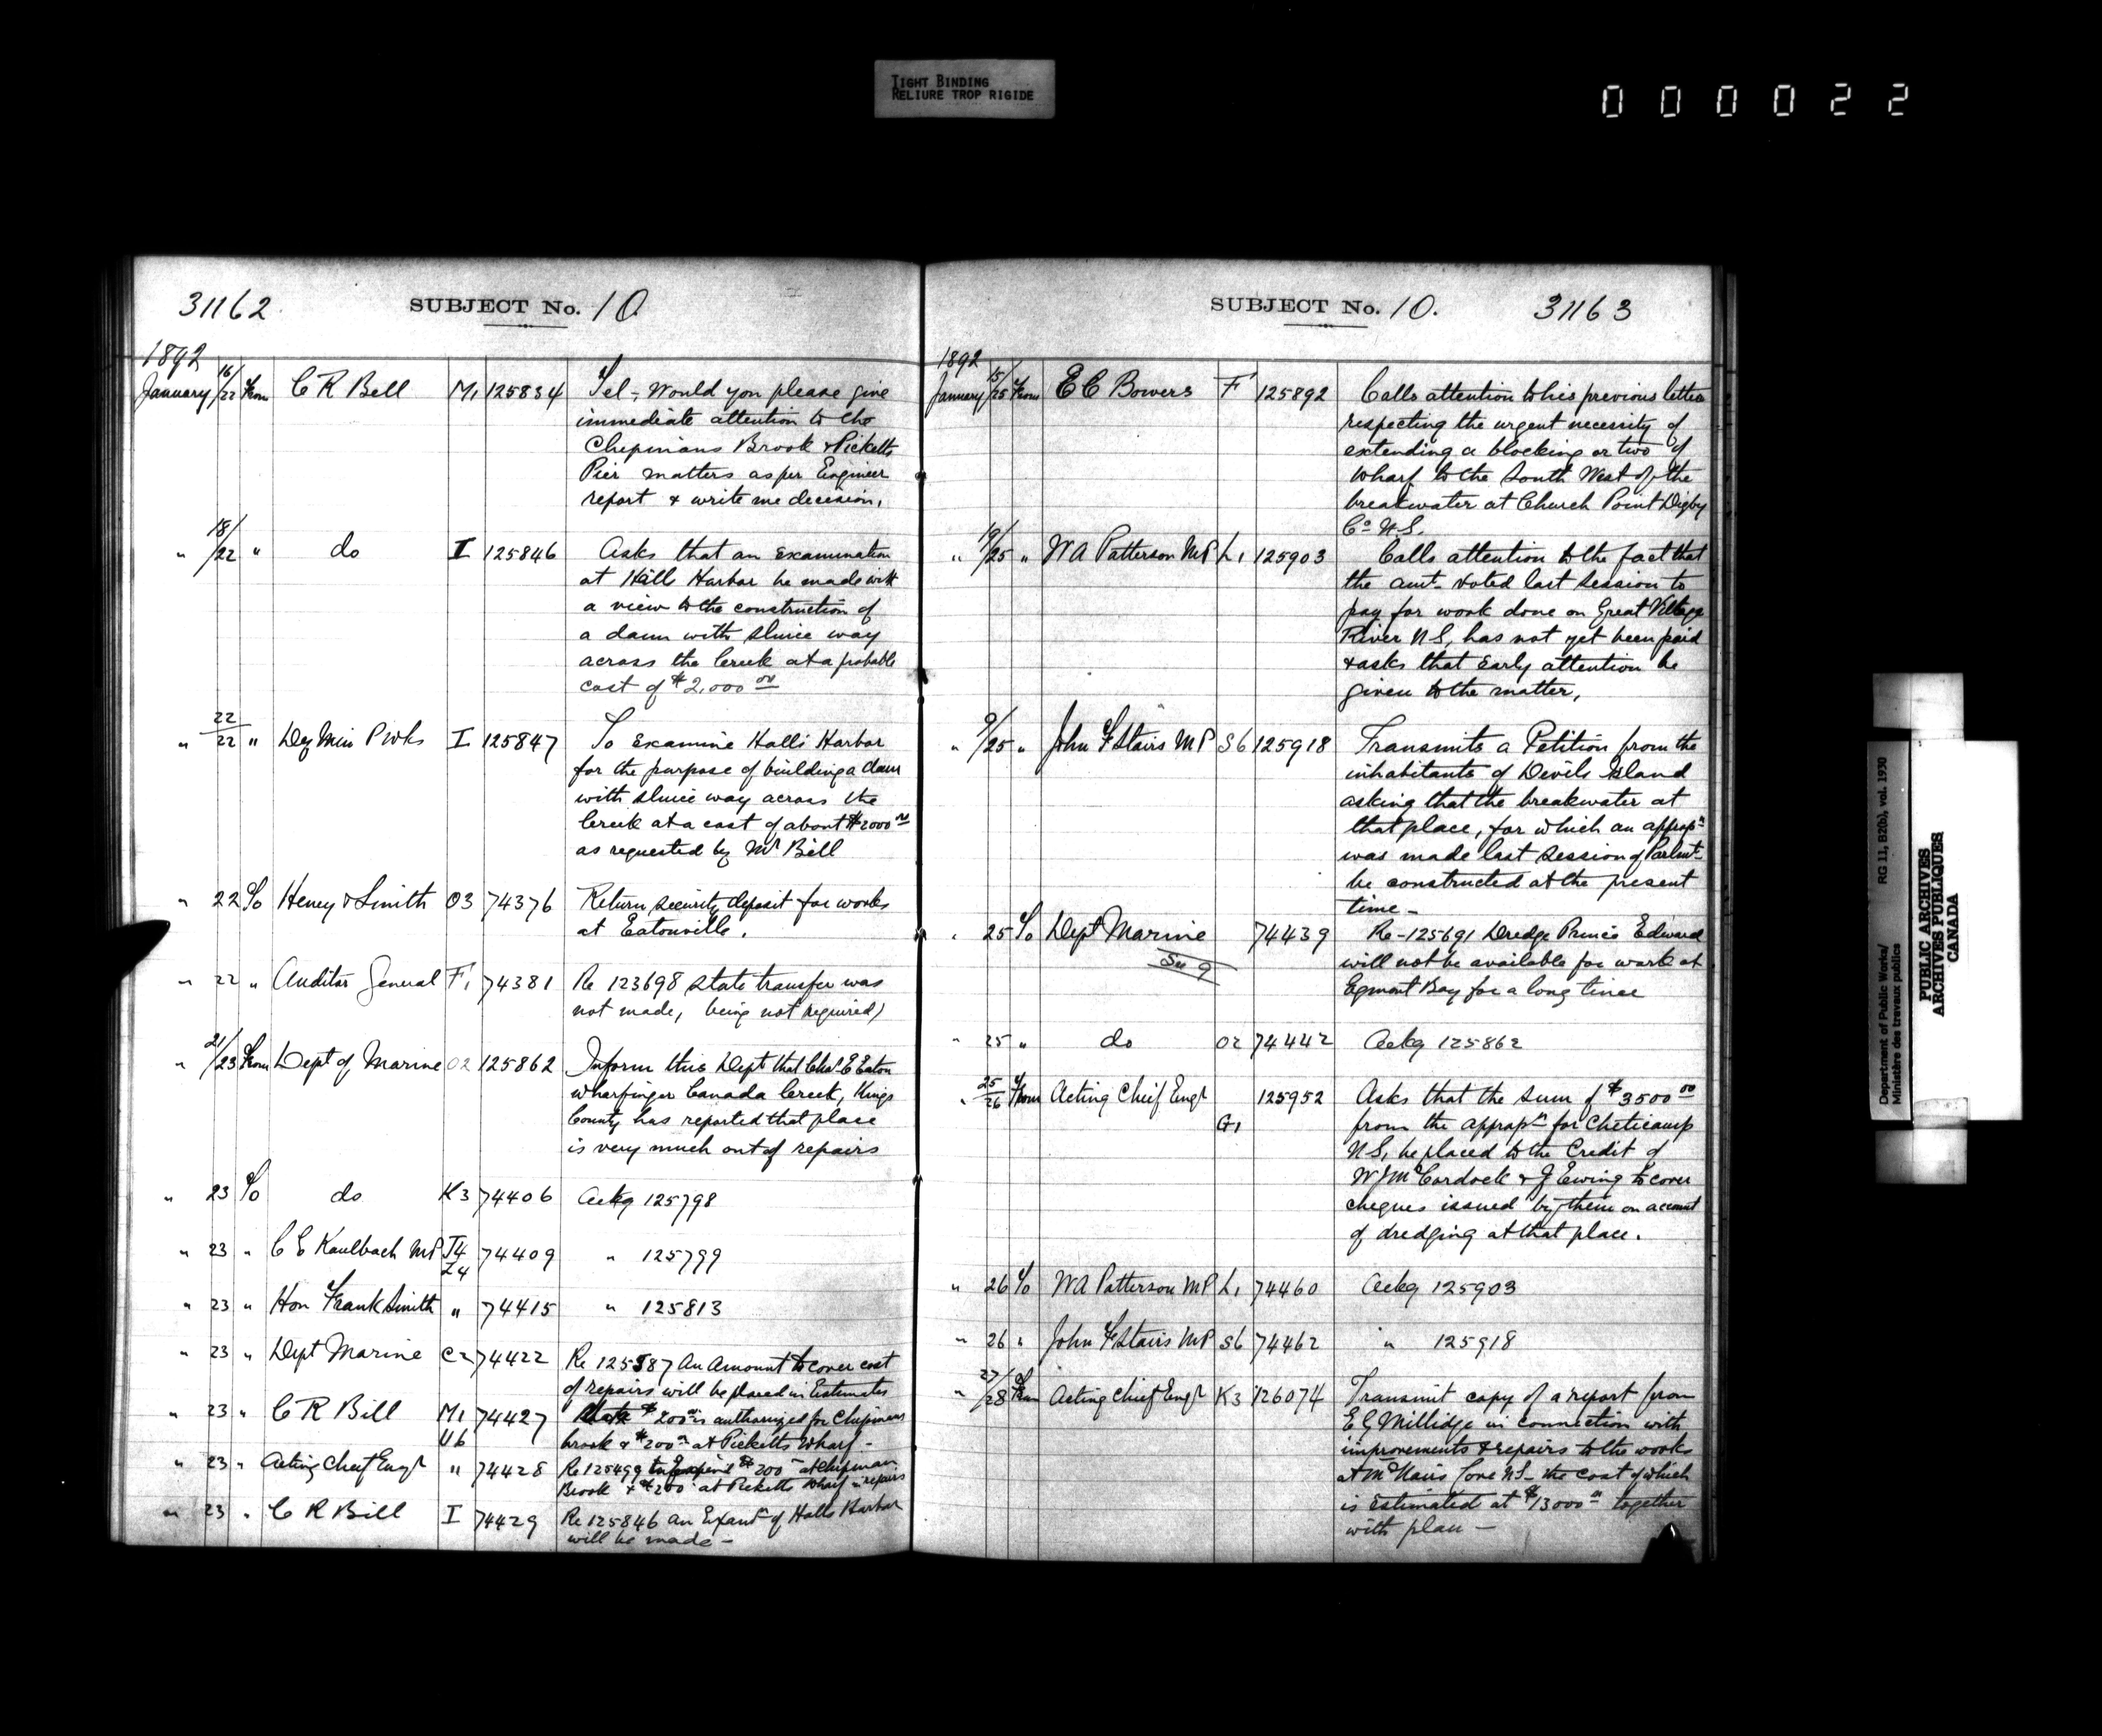 TIGHT BINDING
RELIURE TROP RIGIDE
000022
31162 SUBJECT No. 10.
1892
January 16/22 From C R Bill M1 125834 Tel - Would you please give
immediate attention to the
Chipmans Brook & Picketts
Pier matters as per Engineer
report & write me decision.
" 18/22 " do I 125846 Asks that an examination
at Halls Harbor be made with
a view to the construction of
a dam with sluice way
across the Creek at a probable
cost of $2,000 00
" 22/22 " Dey Min P Wks I 125847 To Examine Halls Harbor
for the purpose of building a dam
with sluice way across the
Creek at a cost of about $2000 00
as requested by Mr Bill
" 22 To Henry & Smith O3 74376 Return security deposit for works
at Eatonville.
" 22 " Auditor General F1 74381 Re 123698 state transfer was
not made, being not required)
" 21/23 From Dept of Marine O2 125862 Inform this Dept that Chas E Eaton
wharfinger Canada Creek, Kings
County has reported that place
is very much out of repairs
" 23 To do K3 74406 Ackg 125798
" 23 " C E Kaulbach MP T4 74409 " 125799
Z4
" 23 " Hon Frank Smith " 74415 " 125813
" 23 " Dept Marine C2 74422 Re 125587 An Amount to cover cost
of repairs will be placed in Estimates
" 23 " C R Bill M1 74427 $200 00 is authorized for Chipmans
U6 brook & $200 00 at Picketts Wharf -
" 23 " Acting Chief Engr " 74428 Re 125499 to Expend $200 at Chipman
Brook & $200 at Picketts Wharf in repairs
" 23 " C R Bill I 74429 Re 125846 an Examn of Halls Harbor
will be made -
SUBJECT No. 10. 31163
1892
January 15/25 From E C Bowers F1 125892 Calls attention to his previous letter
respecting the urgent necessity of
extending a blocking or two of
wharf to the South West of the
breakwater at Church Point Digby
Co N.S.
" 19/25 " W A Patterson MP L1 125903 Calls attention to the fact that
the amt voted last session to
pay for work done on Great Village
River N S, has not yet been paid
& asks that early attention be
given to the matter,
" 9/25 " John F Stairs MP S6 125918 Transmits a Petition from the
inhabitants of Devils Island
asking that the breakwater at
that place, for which an appropn
was made last session of Parlmt
be constructed at the present
time -
" 25 To Dept Marine 74439 Re - 125691 Dredge Prince Edward
See 9 will not be available for work at
Egmont Bay for a long time
" 25 " do O2 74442 Ackg 125862
" 25/26 From Acting Chief Engr 125952 Asks that the sum of $3500 00
G1 from the appropn for Cheticamp
N S, be placed to the Credit of
W J McCordock & J Ewing to cover
cheques issued by them on account
of dredging at that place.
" 26 To W A Patterson MP L1 74460 Ackg 125903
" 26 " John F Stairs MP S6 74462 " 125918
" 27/28 From Acting Chief Engr K3 126074 Transmit copy of a report from
E G Millidge in connection with
improvements & repairs to the works
at McNairs Cove N S - the cost of which
is Estimated at $13000 00 together
with plan -
Department of Public Works/ RG 11, B2(b), vol. 1930
Ministère des travaux publics
PUBLIC ARCHIVES
ARCHIVES PUBLIQUES
CANADA